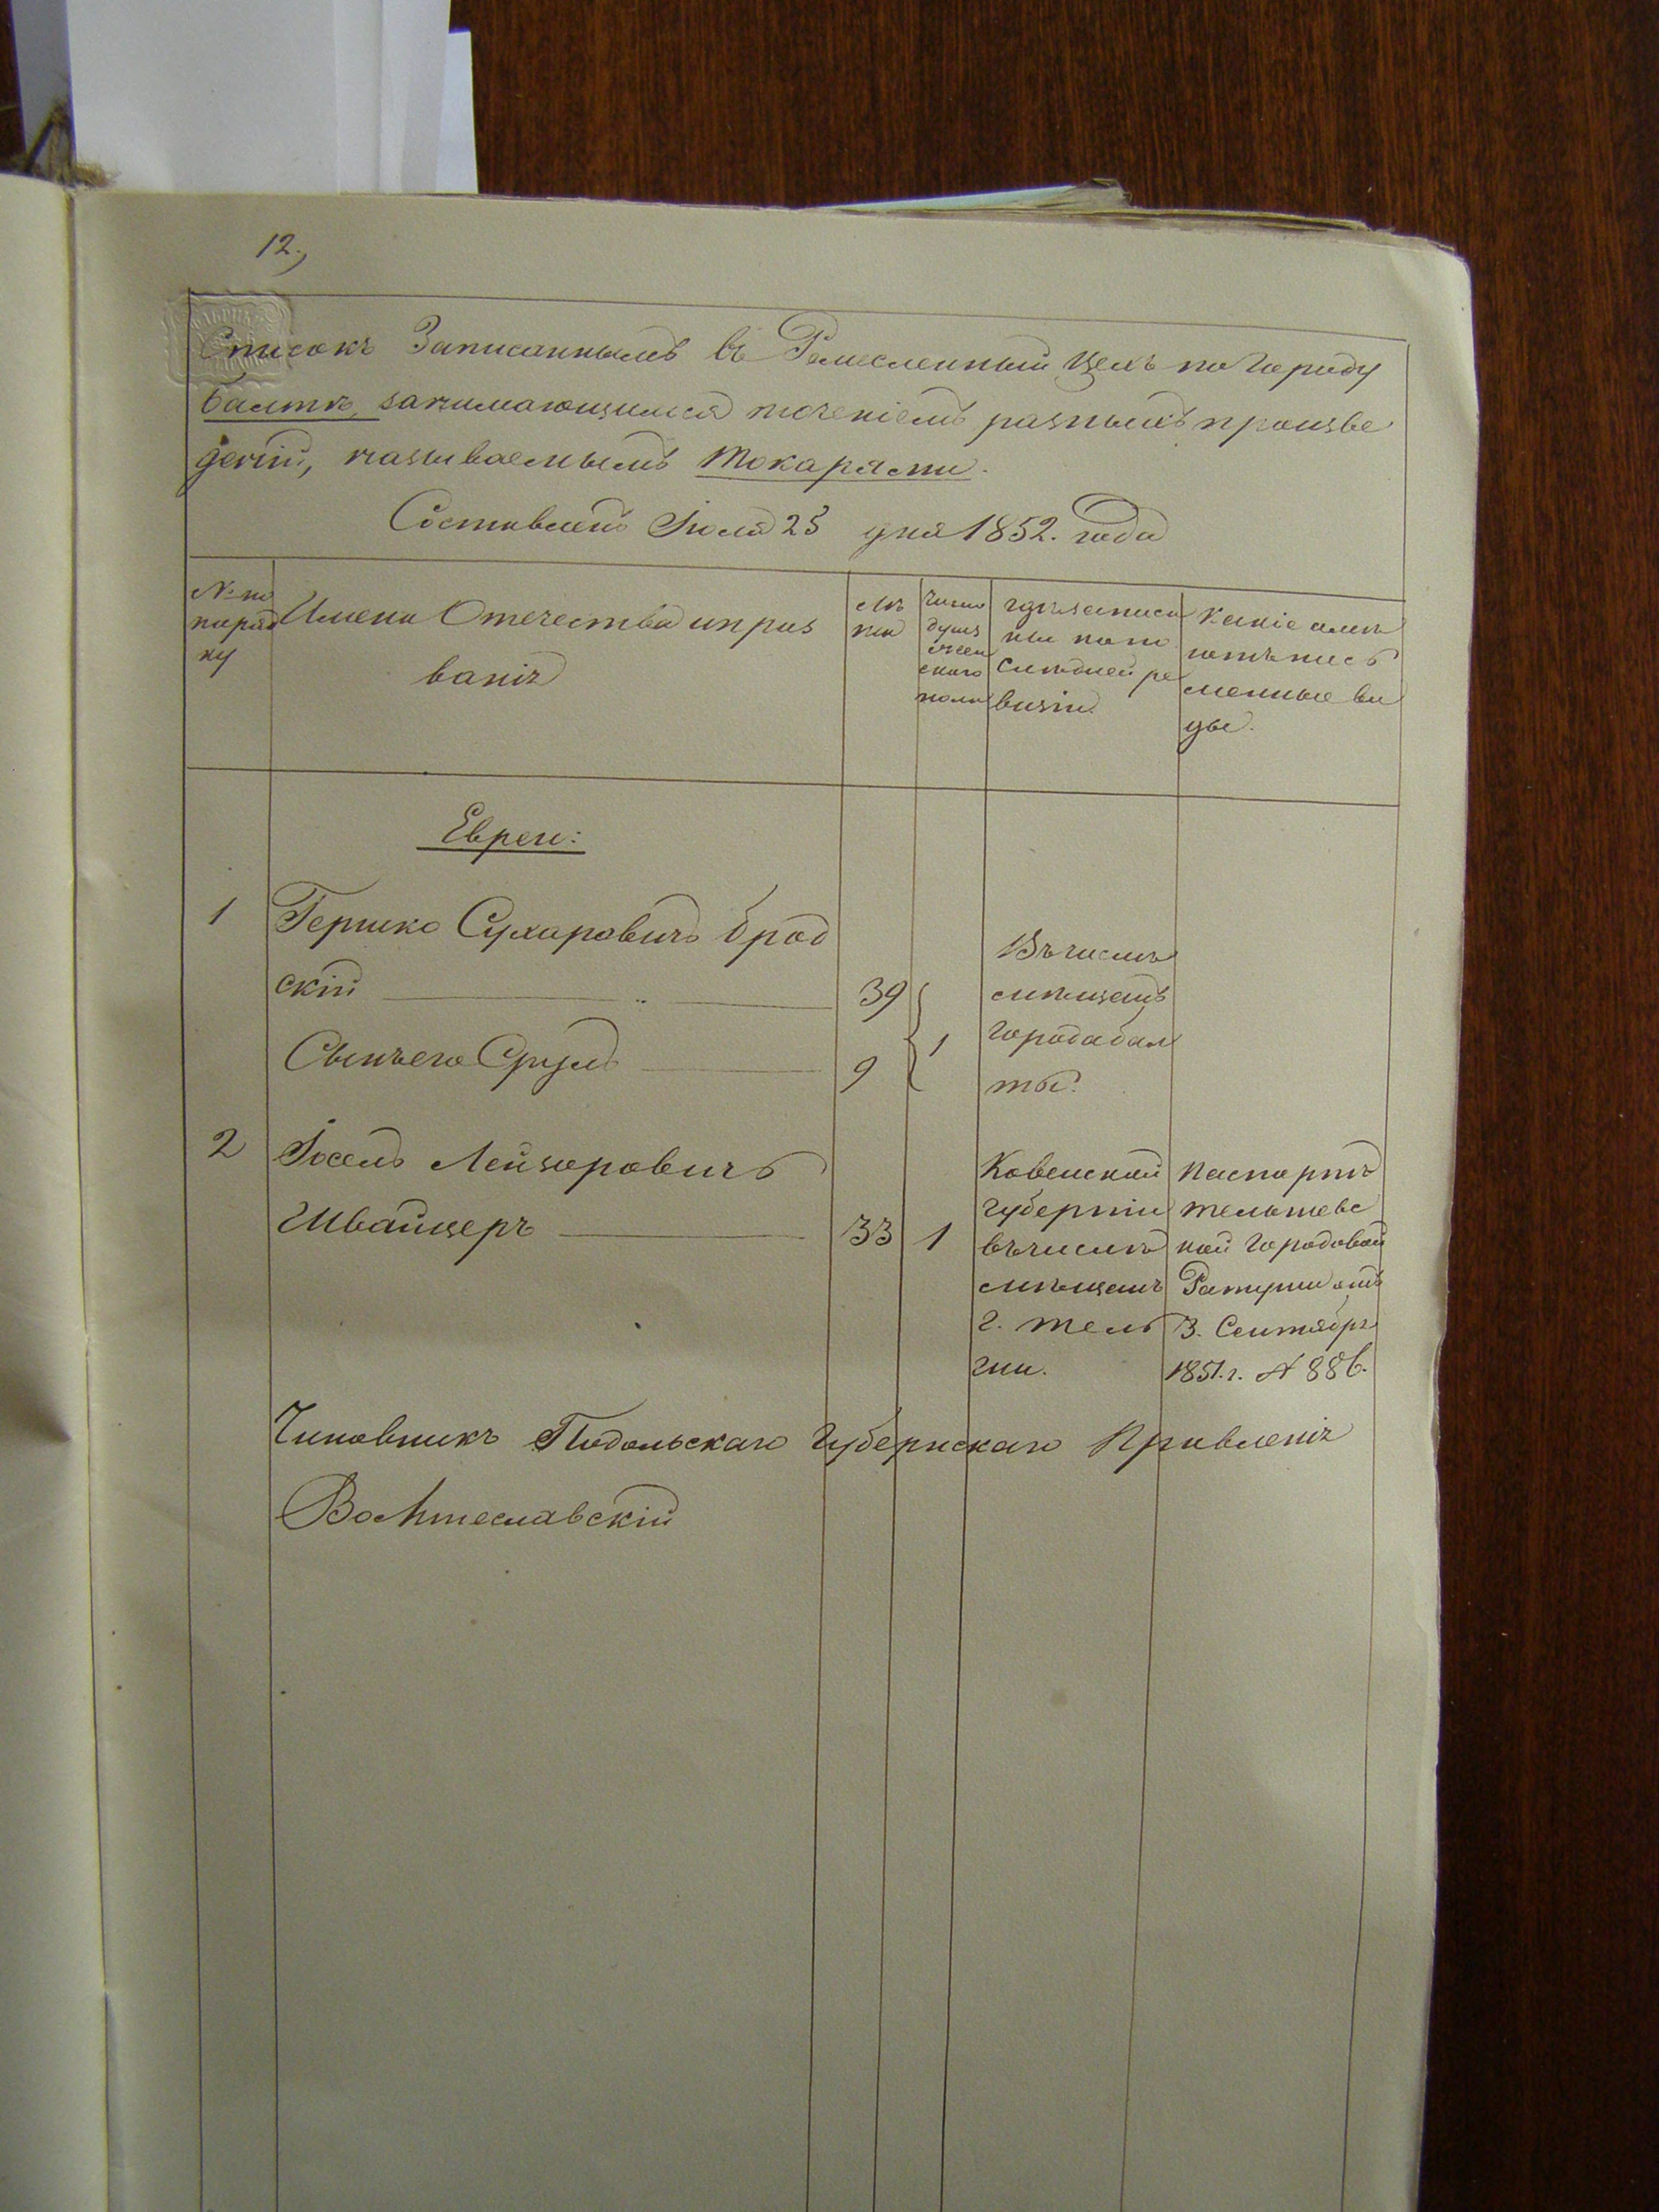 12.,
Списокъ Записаннымъ въ Ремесленный Цехъ по Городу
Балтѣ, занимающимся точеніемъ разныхъ произве
деній, называемымъ Токарями.
Составленъ Іюля 25 дня 1852. года
№ по
поряд
ку
Имена Отечества и проз
ванія
Лѣ
та
Число
душъ
мужескаго
пола
Гдѣ записа
ны по по
слѣдней ре
визіи.
Какіе имѣ
ютъ пись
менные ви
ды.
Евреи:
1 Гершко Сухаровичъ Брод
скій 39
Сынъ его Сруль 9
1
Въ числѣ
мѣщанъ
города Бал
ты.
2 Іосель Лейзеровичъ
Швайцеръ 33 1
Ковенской
Губерніи
въ числѣ
мѣщанъ
г. Тель
ши.
Паспортъ
Тельшевс
кой Городовой
Ратуши отъ
3. Сентября
1851. г. № 886.
Чиновникъ Подольскаго Губернскаго Правленія